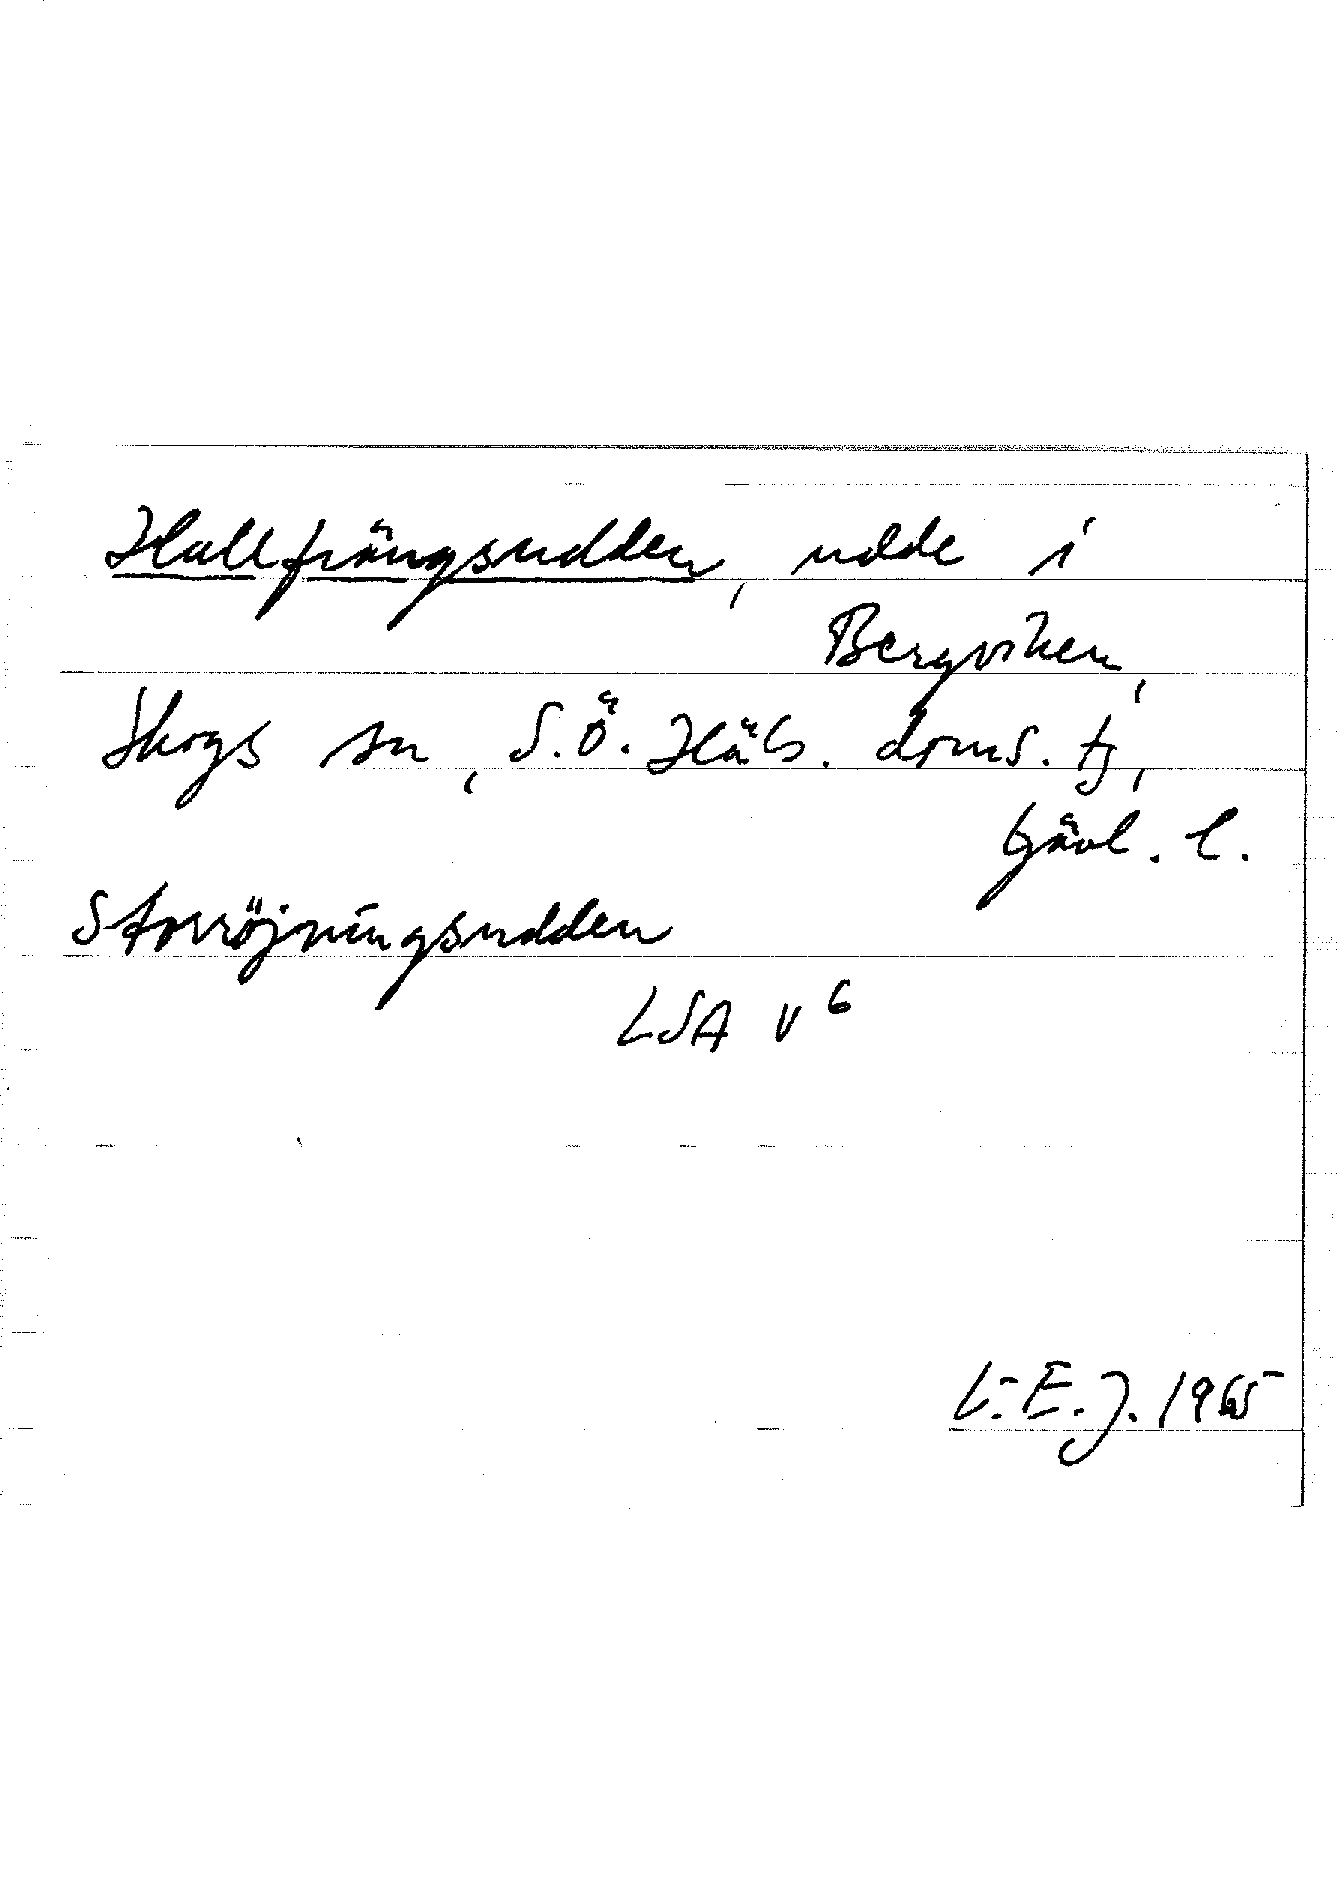 Hallfrängsudden, udde i
Bergviken,
Skogs sn, S.Ö. Häls. doms. tj,
Gävl. l.
Storröjningsudden
LSA V 6
L-E.J. 1965